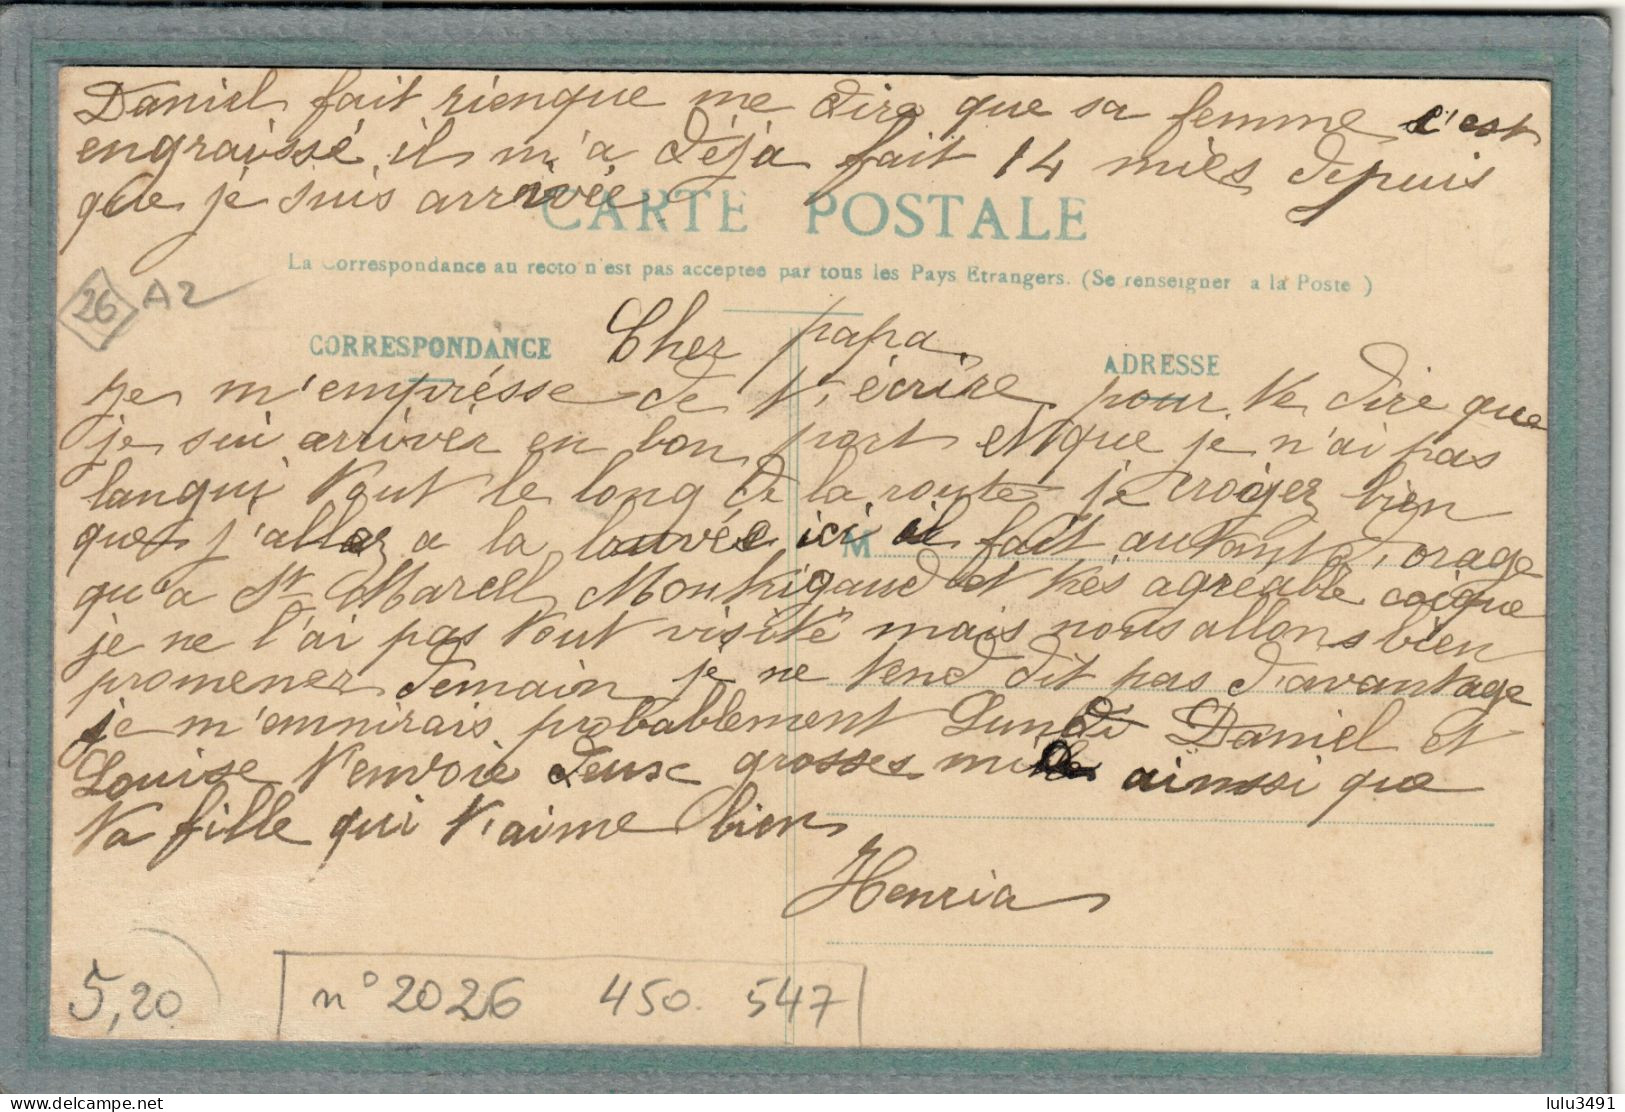 Daniel fait rienque me dire que sa femme c'est
engraissé, il m'a déja fait 14 miles depuis
que je suis arrivée
CARTE POSTALE
La Correspondance au recto n'est pas acceptee par tous les Pays Etrangers. (Se renseigner a la Poste )
26 A2
CORRESPONDANCE
ADRESSE
Cher papa,
je m'emprésse de t'écrire pour te dire que
je sui arriver en bon port et que je n'ai pas
langui tout le long de la route je croiyez bien
que j'allez a la louvée ici il fait autant d'orage
M
qu'a St Marcell, Montrigaud et trés agréable coique
je ne l'ai pas tout visité mais nous allons bien
promener demain je ne tend dit pas d'avantage
je m'ennirais probablement Lundi Daniel et
Louise t'envoie deux grosses ainssi que
ta fille qui t'aime bien
Henria
5,20
n° 2026 450. 547
delcampe.net
lulu3491